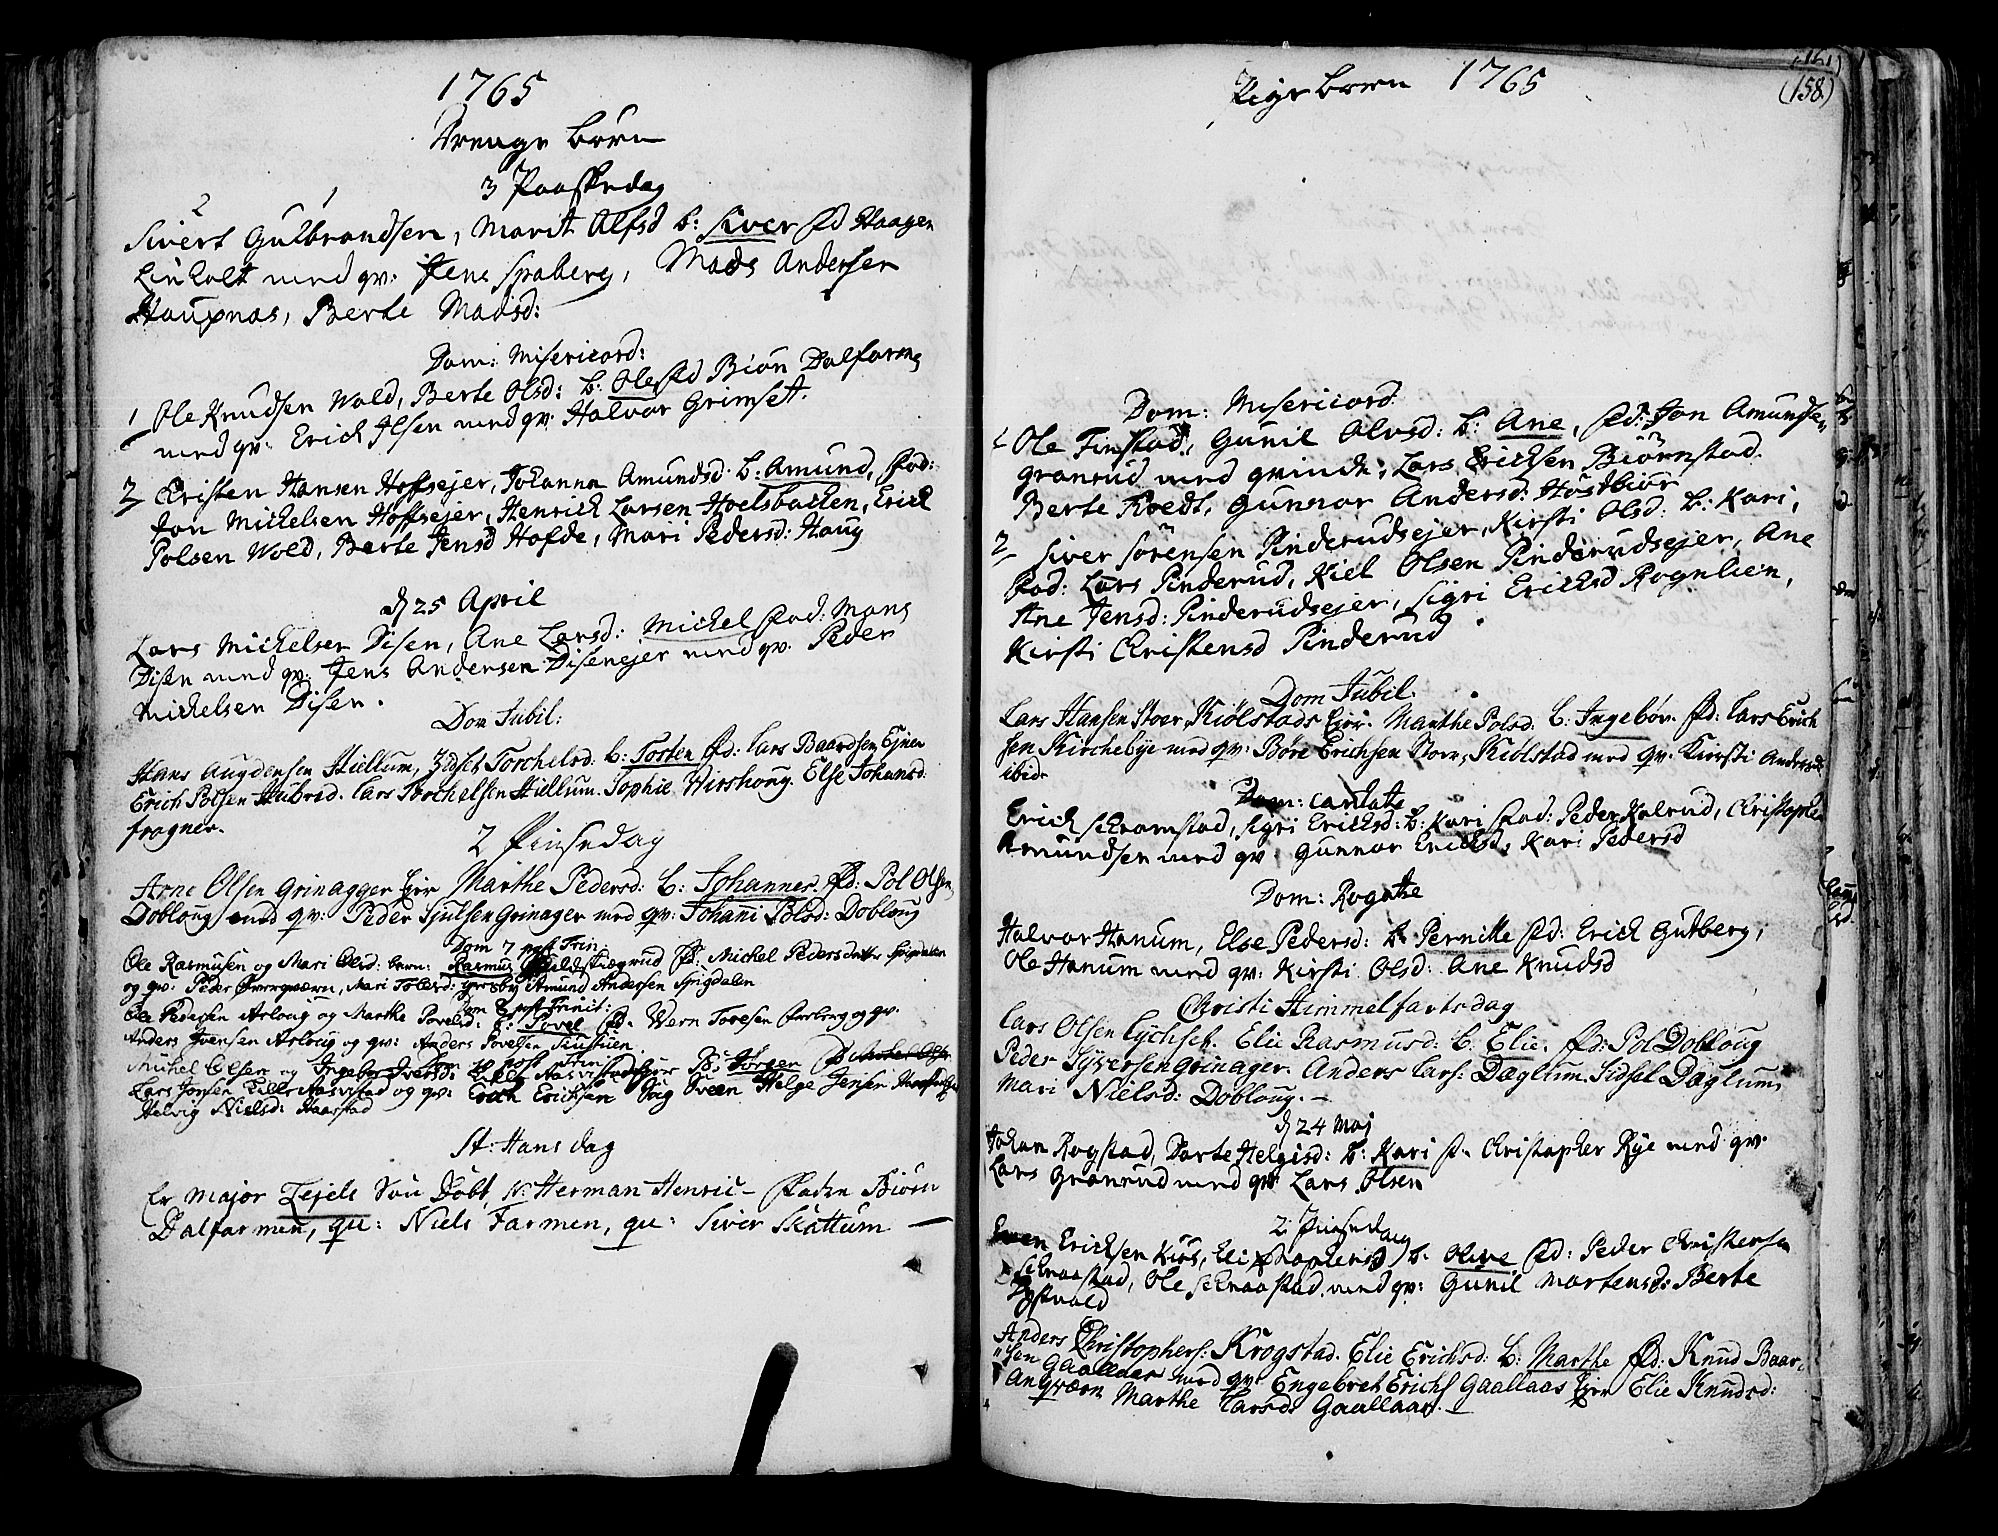 1765
Drenge børn
3 Paaskedag
Sivert Gulbrandsen, Marit Alfsd b: Siver fd Haagen
Linholt med qv: Jens Spaberg, Mads Andersen
Haugnas, Berte Madsd:
Dom: Misericord:
1 Ole Knudsen Wold, Berte Olsd: b: Ole fd Biøn Dalfarm
med qv: Erich Ilsen med qv: Halvor Grimset.
2 Christen Hansen Hoffsejer, Johanna Amundsd b: Amund, fad:
Jon Michelsen Hoffsejer, Henrich Larsen Hoelsbachen, Erich
Polsen Wold, Berte Jensd Hofde, Mari Pedersd: Haug
d 25 April
Lars Michelsen Disen, Ane Larsd: Michel fad: Mons
Disen med qv: Jens Andersen Disenejer med qv. Peder
Michelsen Disen.
Dom Jubil:
Hans Augdensen Hiellum, Zidsel Torchelsd: b: Torsten fd: Lars Baardsen Ejner
Erich Polsen Hubred. Lars Torchelsen Hiellum. Sophie Hirshoug. Else Johansd:
fragner.
2 Pinsedag
Arne Olsen Grinagger Ejer Marthe Pedersd: b: Johannes. fd: Pol Olsen
Dobloug med qv: Peder Sjulsen Grinager med qv: Johanni Polsd: Dobloug
Dom 7 post Trin:
Ole Rasmusen og Mari Olsd: barn: Rasmus fd: Michel Peders Spigdalen
og qv: Peder Øvergværn, Mari Tolevsd: Amund Andersen Spigdalen
Dom 8 post Trinit:
Ole Pedersen Asloug og Marthe Povelsd: b: Povel fd. Wern Toresen og qv.
Anders Iversen Asloug og qv: Anders Povelsen
post Trin
Michel Olsen og Ingebor Iversd: b: Jørgen
Lars Jonsen og qv: Erich Erichsen Helge Jensen
Helvig Nielsd: Haarstad
St: Hans dag
Er Major Tejels Søn Døbt, N: Herman Henric- Fadre Biørn
Dalfarmen, qu: Niels Farmen, qu: Siver Skattum
Pige børn 1765
(158)
Dom: Misericord.
1 Ole Finstad, Gunil Olvsd: b: Ane, fd: Jon Amundse
Granrud med qvinde, Lars Erichsen Biørnstad.
Berte Roedt, Gunnor Andersd: Høstbiør
2 Siver Sørensen Pinderudsejer, Kirsti Olsd: b: Kari,
fad: Lars Pinderud, Kiel Olsen Pinderudsejer, Ane
Ane Jensd: Pinderudsejer, Sigri Erichsd Rognlien,
Kirsti Christensd Pinderud
Dom Jubil.
Lars Hansen Stoer Kiølstads Ejer. Marthe Polsd. b. Ingebør. fd: Lars Erich
sen Kirchebye med qv: Børe Erichsen Store Kiølstad med qv. Kiersti Andersd:
ibid.
Dom: Cantate
Erich Schramstad, Sigri Erichsd: b: Kari fad: Peder Kalrud, Christophe
Amundsen med qv: Gunnor Erichsd, Kari Pedersd
Dom: Rogate
Halvor Hanum, Else Pedersd: b. Pernille fd: Erich Gutberg,
Ole Hanum med qv: Kirsti Olsd: Ane Knudsd
Christi Himmelfartsdag
Lars Olsen Lychseb. Elie Rasmusd: b: Elie. fd: Pol Dobloug
Peder Syversen Grinager. Anders Lars: Dæglum. Sidsel Dæglum,
Mari Nielsd: Dobloug.
d 24 Maj
Johan Rogstad, Dorte Helgesd: b: Kari f. Christopher Rye med qv.
Lars Granrud med qv Lars Olsen
2 Pinsedag
Even Erichsen Kus, Eli b: Olive fd: Peder Christense
Schraastad, Ole Schraastad, med qv: Gunil Mortensd: Berte
Østvold
Anders Christophers: Krogstad. Elie Erichsd: b: Marthe fd: Knud Baar
sen Gaallaas med qv: Engebret Erichs Gaallaas Ejer Elie Knudsd:
Angværn Marthe Larsd: Gaallaas.